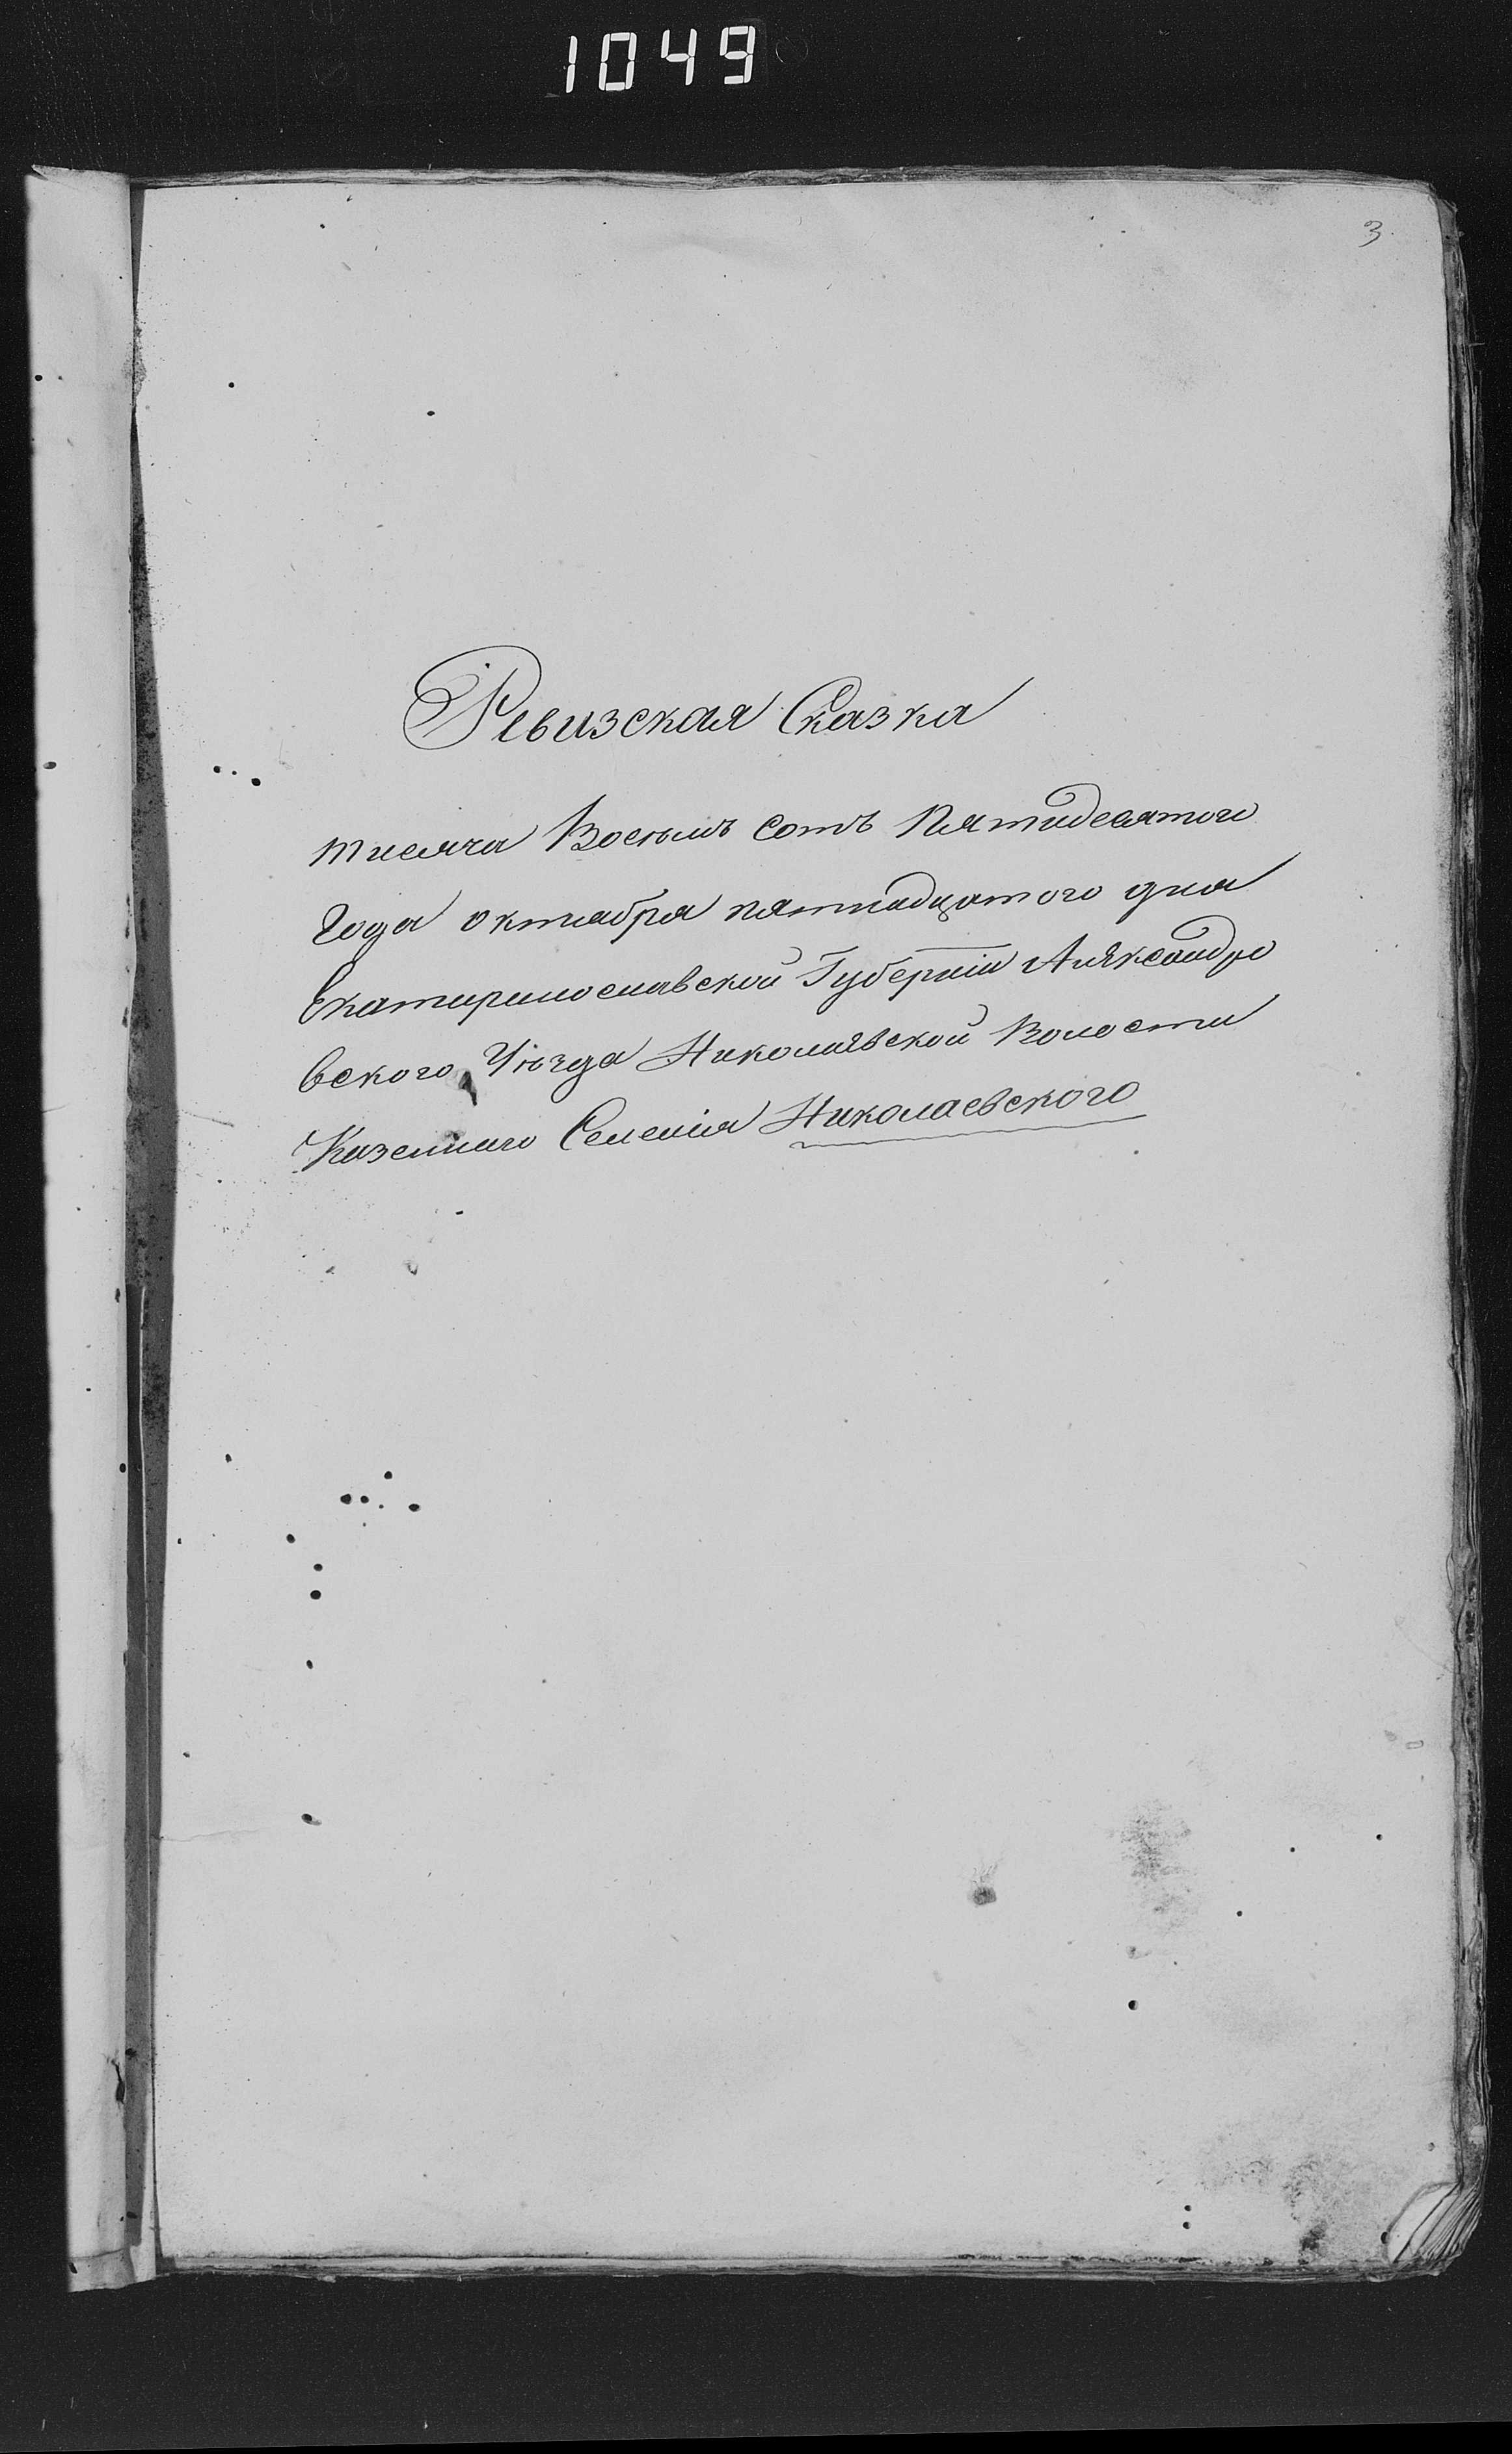 1049
3.
Ревизская Сказка
тисяча Восемь сотъ Пятидесятого
Года октября пятнадцатого дня
Екатиринославской Губерніи Аляксандро
вского Уѣзда Николаевской Волости
Казенного Селенія Николаевского